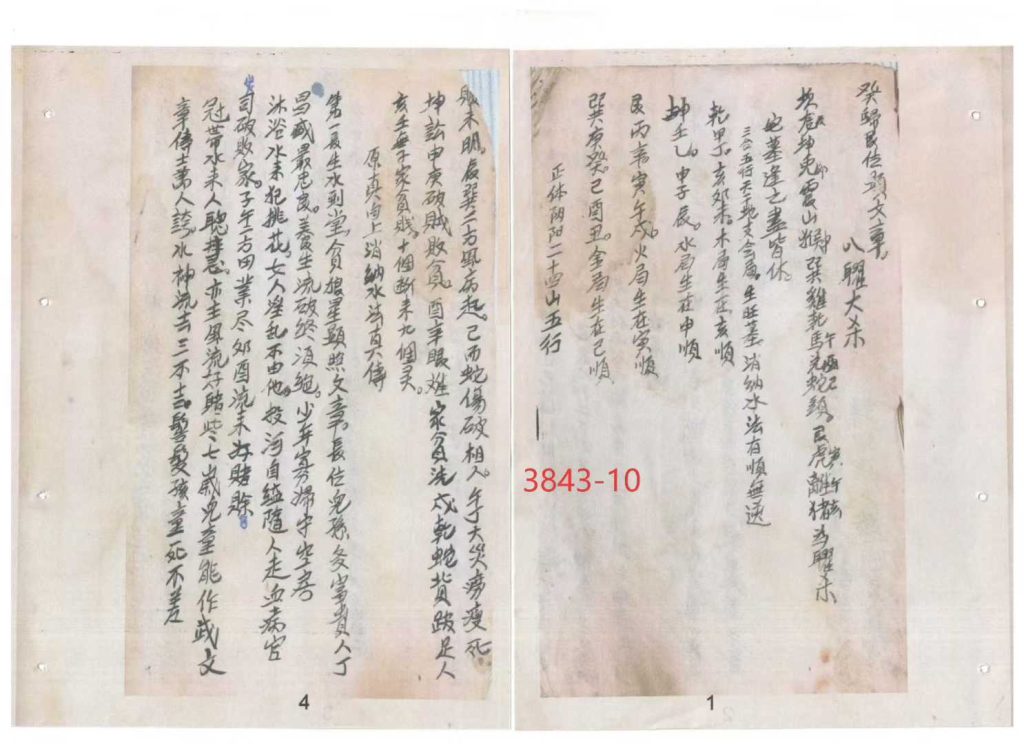 癸歸艮位頭文章。
八曜大杀
坎龍坤兔震山猴。巽雞乾馬兌蛇頭。艮虎離猪为曜杀
卯
申
午
酉
巳
寅
亥
宅墓逢之盡皆休。
三合五行天干地支会局。生旺墓消納水法有順無逆
乾甲丁。亥卯未。木局生在亥順
坤壬乙。申子辰。水局生在申順
艮丙辛。寅午戌。火局生在寅順
巽庚癸。巳酉丑。金局生在巳順
正体阴阳二十四山五行
3843-10
1
敗未明。辰巽二方風病起。巳丙蛇傷破相人。午丁火災癆瘦死
坤訟申庚破賊敗貪。酉辛眼难家貧洗 戌乾蛇背跛足人
亥壬無子家貧贱。十個断来九個灵。
原真向上消納水法百六傳
第一長生水到堂。貪狼星顕照文章。長位兒孫多富貴人丁
昌盛最忠良。養生流破終須絕。少年寡婦守空房
沐浴水来犯桃花。女人淫乱不由他。投河自縊隨人走血病官
司破敗家。子午二方田業尽卯酉流来好賭賒
冠带水来人聪慧。亦主風流好賭些七歲兒童能作賦文
章傳士萬人誇水神流去三不去。髫髮孩童死不差
4